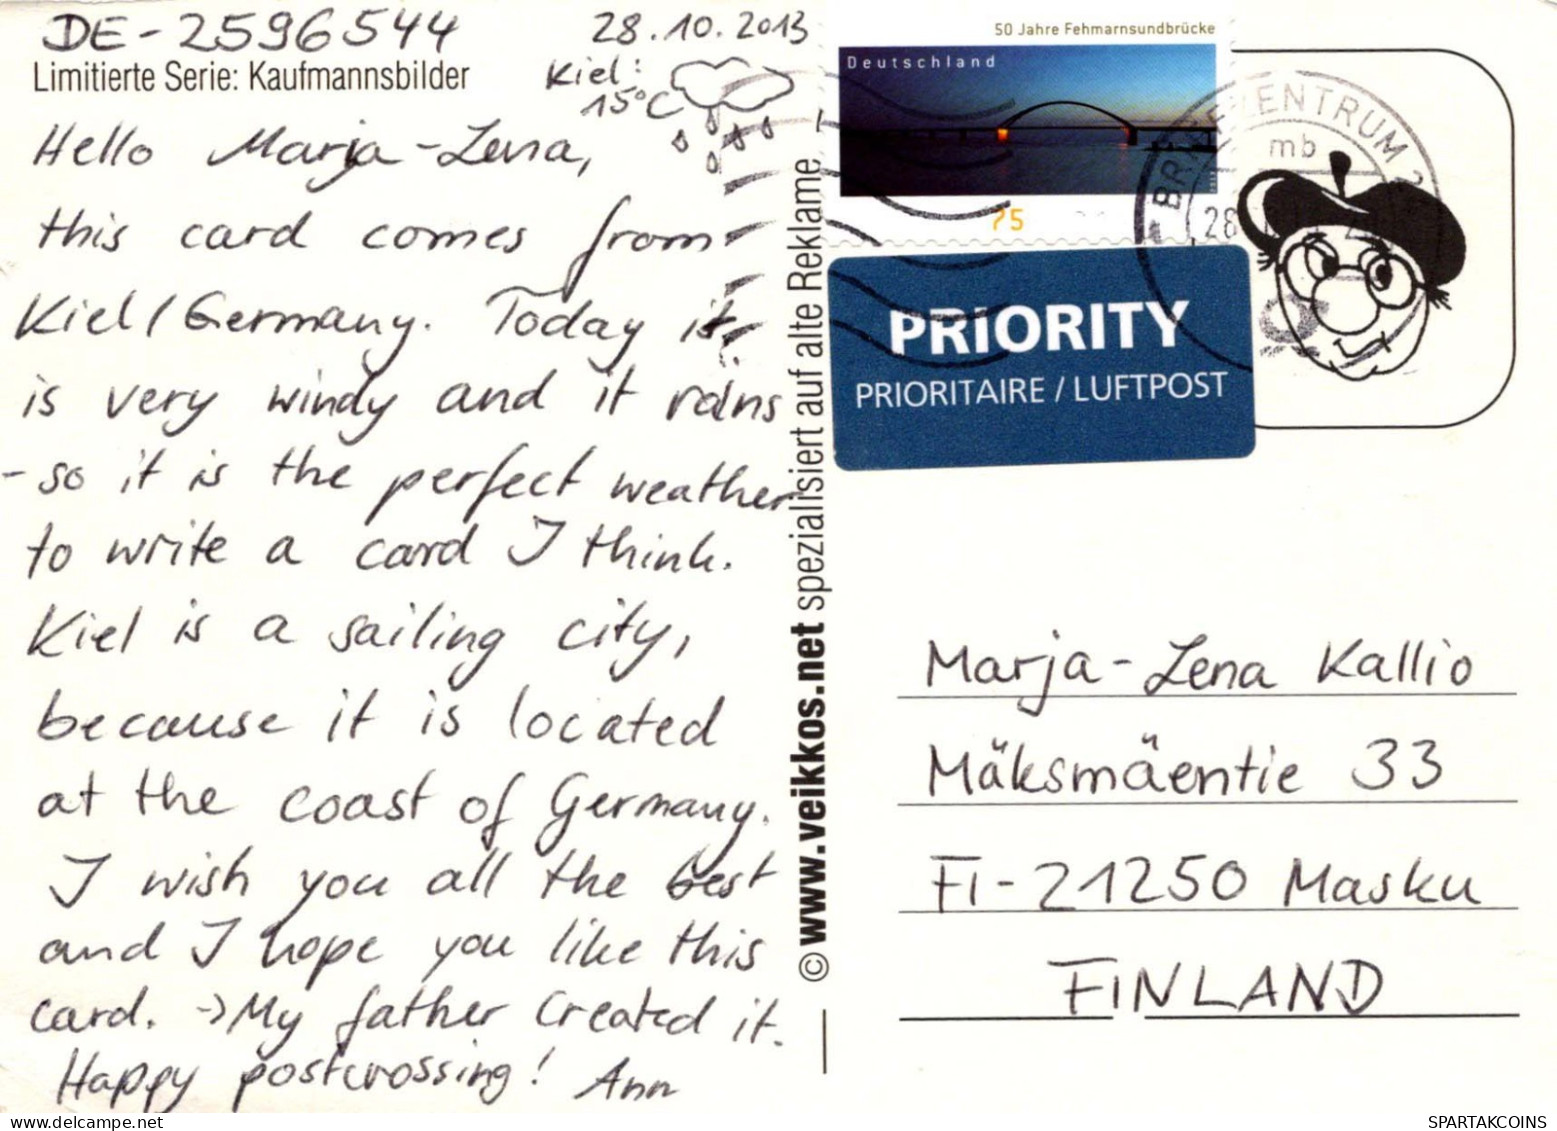 DE-2596544
28.10.2013
Limitierte Serie: Kaufmannsbilder
Kiel:
15°C
Hello Marja-Lena,
this card comes from
Kiel/Germany. Today it
is very windy and it rains
- so it is the perfect weather
to write a card I think.
Kiel is a sailing city,
because it is located
at the coast of Germany.
I wish you all the best
and I hope you like this
card. -> My father created it.
Happy postcrossing! Ann
© www.veikkos.net spezialisiert auf alte Reklame
50 Jahre Fehmarnsundbrücke
Deutschland
75
mb
28
PRIORITY
PRIORITAIRE / LUFTPOST
Marja-Lena Kallio
Mäksmäentie 33
FI-21250 Masku
FINLAND
SPARTAKCOINS